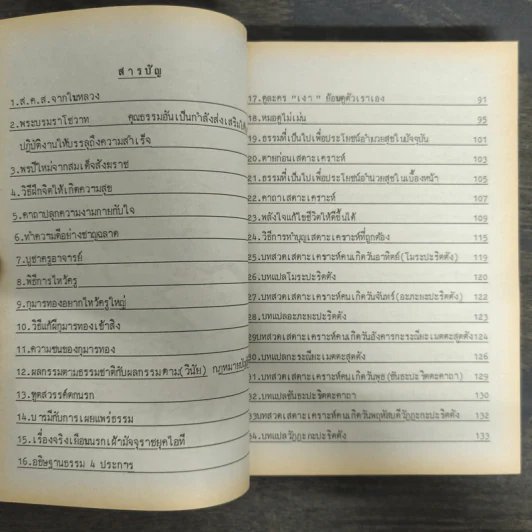 สารบัญ
1.ส.ค.ส.จากในหลวง
2.พระบรมราโชวาท คุณธรรมอันเป็นกำลังส่งเสริมให้
ปฏิบัติงานให้บรรลุถึงความสำเร็จ
3.พรปีใหม่จากสมเด็จสังฆราช
4.วิธีฝึกจิตให้เกิดความสุข
5.คาถาปลุกความงามกายกับใจ
6.ทำความดีอย่างชาญฉลาด
7.บูชาครูอาจารย์
8.พิธีการไหว้ครู
9.กุมารทองอยากไหว้ครูใหญ่
10.วิธีแก้ผีกุมารทองเข้าสิง
11.ความซนของกุมารทอง
12.ผลกรรมตามธรรมชาติกับผลกรรมตาม(วินัย) กฎหมาย
13.ทูตสวรรค์ตกนรก
14.บารมีกับการเผยแพร่ธรรม
15.เรื่องจริงเยือนนรกเฝ้ามัจจุราชยุคไอที
16.อธิษฐานธรรม 4 ประการ
17.ดูละคร "เงา" ย้อนดูตัวเราเอง 91
18.หมอดูไม่แม่น 95
19.ธรรมที่เป็นไปเพื่อประโยชน์อำนวยสุขในปัจจุบัน 101
20.ตายก่อนเสดาะเคราะห์ 103
21.ธรรมที่เป็นไปเพื่อประโยชน์อำนวยสุขในเบื้องหน้า 105
22.คาถาเสดาะเคราะห์ 107
23.พลังใจแก้ไขชีวิตให้ดีขึ้นได้ 109
24.วิธีการทำบุญเสดาะเคราะห์ที่ถูกต้อง 115
25.บทสวดเสดาะเคราะห์คนเกิดวันอาทิตย์(โมระปะริตตัง) 119
26.บทแปลโมระปะริตตัง 120
27.บทสวดเสดาะเคราะห์คนเกิดวันจันทร์(อะภะยะปะริตตัง) 122
28.บทแปลอะภะยะปะริตตัง 123
29บทสวดเสดาะเคราะห์คนเกิดวันอังคารกะระณียะเมตตะสุตตัง124
30.บทแปลกะระณียะเมตตะสุตตัง 126
31.บทสวดเสดาะเคราะห์คนเกิดวันพุธ(ขันธะปะริตตะคาถา) 129
32.บทแปลขันธะปะริตตะคาถา 130
33บทสวดเสดาะเคราะห์คนเกิดวันพฤหัสบดีวัฏฏะกะปะริตตัง 132
34.บทแปลวัฏฏะกะปะริตตัง 133